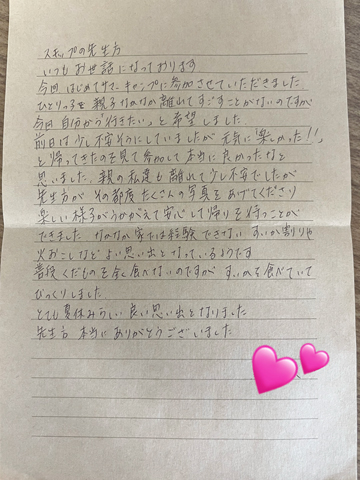 ステップの先生方
いつもお世話になっております
今回 はじめてサマーキャンプに参加させていただきました
ひとりっ子で 親となかなか離れてすごすことがないのですが
今回 自分から「行きたい」と希望しました
前日は少し不安そうにしていましたが 元気に「楽しかった!!」
と帰ってきたのを見て参加して本当に良かったなと
思いました。親の私達も離れて少し不安でしたが
先生方が その都度 たくさんの写真をあげてくださり
楽しい様子がうかがえて安心して帰りを待つことが
できました なかなか家では経験できない すいか割りや
火おこしなど よい思い出となっているようです
普段 くだものを全く食べないのですが すいかを食べていて
びっくりしました
とても夏休みらしい 良い思い出となりました
先生方 本当にありがとうございました